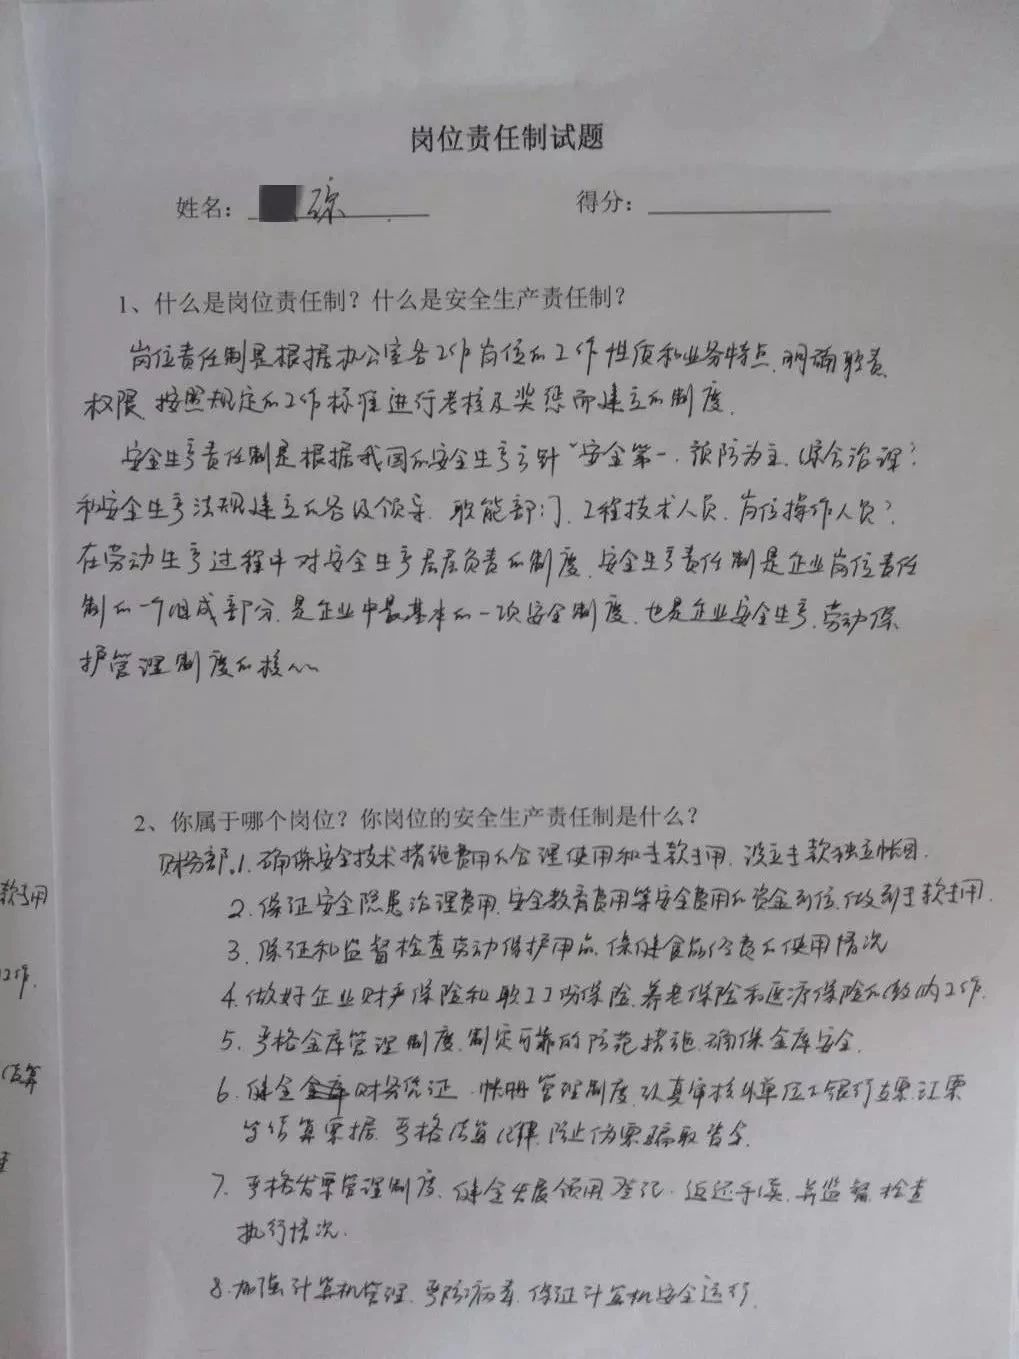 岗位责任制试题
姓名：琼 得分：
1、什么是岗位责任制？什么是安全生产责任制？
岗位责任制是根据办公室各工作岗位的工作性质和业务特点，明确职责、
权限，按照规定的工作标准进行考核及奖惩而建立的制度。
安全生产责任制是根据我国的安全生产方针“安全第一，预防为主，综合治理”
和安全生产法规建立的各级领导、职能部门、工程技术人员、岗位操作人员
在劳动生产过程中对安全生产层层负责的制度。安全生产责任制是企业岗位责任
制的一个组成部分，是企业中最基本的一项安全制度，也是企业安全生产、劳动保
护管理制度的核心
2、你属于哪个岗位？你岗位的安全生产责任制是什么？
财务部。1.确保安全技术措施费用的合理使用和专款专用，设立专款独立帐目。
2.保证安全隐患治理费用、安全教育费用等安全费用的资金到位，做到专款专用。
3.保证和监督检查劳动保护用品、保健食品经费的使用情况
4.做好企业财产保险和职工工伤保险、养老保险和医疗保险的缴纳工作。
5.严格金库管理制度，制定可靠的防范措施，确保金库安全。
6.健全财务凭证、帐册管理制度，认真审核外单位银行支票、汇票
等结算票据，严格结算纪律，防止伪票骗取资金。
7.严格发票管理制度，健全发展领用登记、返还手续，并监督、检查
执行情况。
8.加强计算机管理，严防病毒，保证计算机安全运行。
款专用
工作。
结算